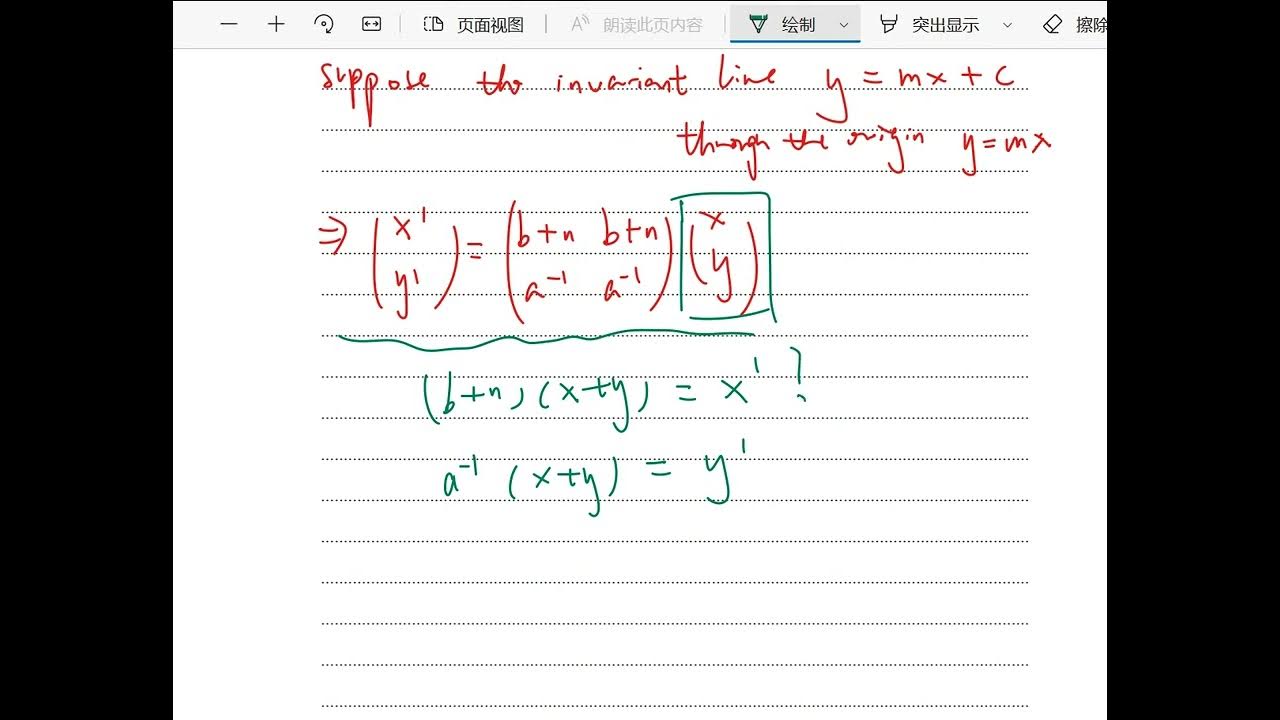 页面视图 朗读此页内容 绘制 突出显示 擦除
suppose the invariant line y = mx + c
through the origin y = mx
⇒ (x' y') = (b+n b+n a⁻¹ a⁻¹) (x y)
(b+n) (x+y) = x' ?
a⁻¹ (x+y) = y'